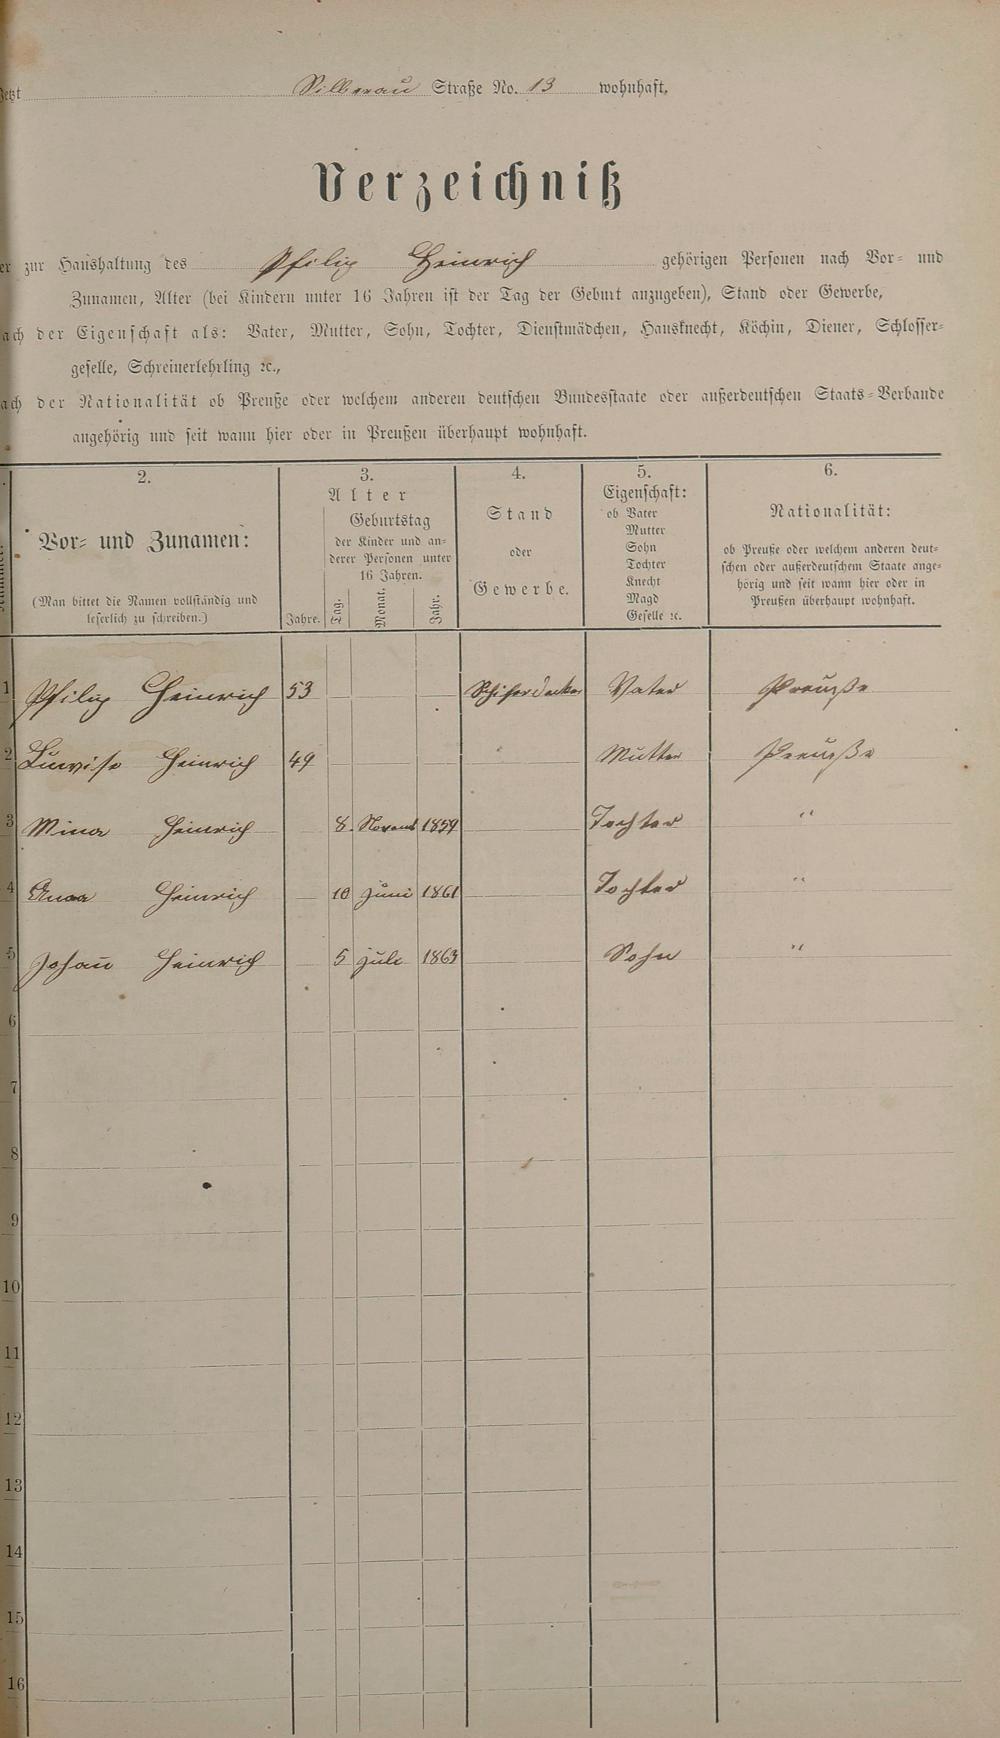 Jetzt Silberau Straße No. 13 wohnhaft.
Verzeichniß
er zur Haushaltung des Philip Heinrich gehörigen Personen nach Vor- und
Zunamen, Alter (bei Kindern unter 16 Jahren ist der Tag der Geburt anzugeben), Stand oder Gewerbe,
ach der Eigenschaft als: Vater, Mutter, Sohn, Tochter, Dienstmädchen, Hausknecht, Köchin, Diener, Schlosser-
geselle, Schreinerlehrling ꝛc.,
ach der Nationalität ob Preuße oder welchem anderen deutschen Bundesstaate oder außerdeutschen Staats-Verbande
angehörig und seit wann hier oder in Preußen überhaupt wohnhaft.
2. 3. 4. 5. 6.
Vor- und Zunamen:
(Man bittet die Namen vollständig und
leserlich zu schreiben.)
Alter
Jahre.
Geburtstag
der Kinder und an-
derer Personen unter
16 Jahren.
Tag. Monat. Jahr.
Stand
oder
Gewerbe.
Eigenschaft:
ob Vater
Mutter
Sohn
Tochter
Knecht
Magd
Geselle ꝛc.
Nationalität:
ob Preuße oder welchem anderen deut-
schen oder außerdeutschem Staate ange-
hörig und seit wann hier oder in
Preußen überhaupt wohnhaft.
1 Philip Heinrich 53 Schiferdecker Vater Preuzße
2 Luwise Heinrich 49 Mutter Preuzße
3 Mina Heinrich 8 Novemb 1859 Tochter "
4 Anna Heinrich 10 Juni 1861 Tochter "
5 Johan̄ Heinrich 5 Juli 1863 Sohn "
6
7
8
9
10
11
12
13
14
15
16